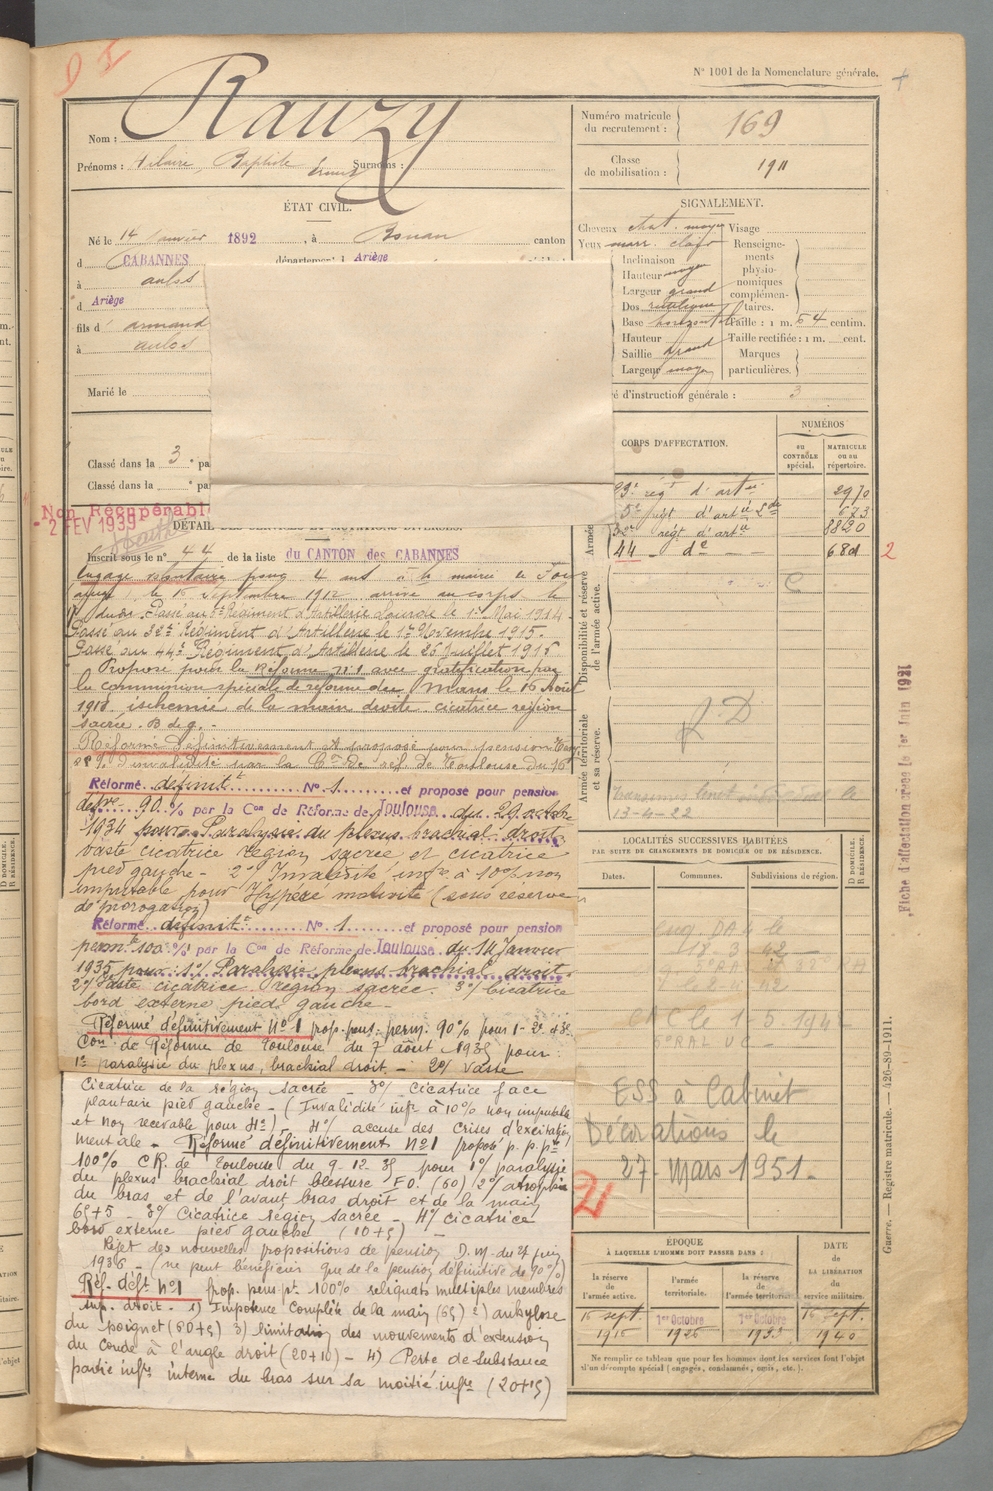 N° 1001 de la Nomenclature générale.
Rauzy
Nom :
Prénoms : Hilaire, Baptiste Surnoms :
Numéro matricule
du recrutement : 169
Classe
de mobilisation : 1911
ÉTAT CIVIL.
Né le 14 Janvier 1892, à canton
d CABANNES département d Ariège
à aulos
d Ariège
fils d' armand
à aulos
Marié le
Classé dans la 3e pa
Classé dans la pa
SIGNALEMENT.
Cheveux chat. moyen Visage
Yeux marr. clair
Inclinaison
Hauteur moyen
Largeur grand
Dos rectiligne
Base horizontal
Hauteur
Saillie grand
Largeur moyen
Renseigne-
ments
physio-
nomiques
complémen-
taires.
Taille : 1 m. 64 centim.
Taille rectifiée : 1 m. cent.
Marques
particulières.
é d'instruction générale : 3
CORPS D'AFFECTATION.
NUMÉROS
au
CONTRÔLE
spécial.
MATRICULE
ou au
répertoire.
régt d'artie 2970
5e régt d'artie Lde 673
32e régt d'artie 8820
44 - de - - 2
Non Récupérabl
- 2 FEV 1939
DÉTAIL DES SERVICES ET MUTATIONS DIVERSES.
Inscrit sous le n° 44 de la liste du CANTON des CABANNES
Engagé volontaire pour 4 ans à la mairie de
le 16 Septembre 1912 arrivé au corps le
17 dudit. Passé au 5e Régiment d'Artillerie Lourde le 1er Mai 1914
Passé au 32e Régiment d'Artillerie le 1er Novembre 1915.
Passé au 44e Régiment d'Artillerie le 26 Juillet 1916
Proposé pour la Réforme n°1 avec gratification par
la commission spéciale de réforme du Mans le 16 Août
1918. ischemie de la main droite cicatrice région
sacrée. B de g. -
Réformé Définitivement et proposé pour pension
% d'invalidité par la Con de réf. de Toulouse du 16
Réformé définitt N° 1 et proposé pour pension
90 % par la Con de Réforme de Toulouse du 29 octobre
1934 pour: Paralysie du plexus brachial droit
vaste cicatrice région sacrée et cicatrice
pied gauche - 2° Invalidité infre à 10% non
imputable pour Hypéré motivité (sous réserve
de prorogation)
Réformé définitt N° 1 et proposé pour pension
permte 100 % par la Con de Réforme de Toulouse du 14 Janvier
1935 pour: 1°/ Paralysie plexus brachial droit
2°/ Vaste cicatrice région sacrée. 3°/ Cicatrice
bord externe pied gauche -
Réformé définitivement N°1 prop. pens. perm. 90% pour 1- 2e +3e
Con de Réforme de Toulouse du 7 août 1935 pour :
1° paralysie du plexus, brachial droit. - 2°/ Vaste
Cicatrice de la région sacrée - 3°/ Cicatrice face
plantaire pied gauche - (Invalidité infre à 10% non imputable
et non recevable pour 4e) - 4°/ accuse des crises d'excitation
mentale - Réformé définitivement N°1 proposé p. p. pte
100% C.R. de Toulouse du 9-12-35 pour 1°/ paralysie
du plexus brachial droit blessure F.O. (60) 2°/ atrophie
du bras et de l'avant bras droit et de la main
65+5 - 3°/ Cicatrice région sacrée - 4°/ cicatrice
bord externe pied gauche (10+5)
Rejet des nouvelles propositions de pension D.M. du 27 juin
1936 - (ne peut bénéficier que de la pension définitive de 90%)
Réf. déft n°1 prop. pens. pt. 100% reliquats multiples membres
sup. droit. 1) Impotence complète de la main (65) 2) ankylose
du poignet (60+5) 3) limitation des mouvements d'extension
du coude à l'angle droit (20+10) - 4) Perte de substance
partie infre interne du bras sur sa moitié infre (20+15)
Armée
Disponibilité et réserve
de l'armée active.
Armée territoriale
et sa réserve.
C
RD
13-4-22
LOCALITÉS SUCCESSIVES HABITÉES
PAR SUITE DE CHANGEMENTS DE DOMICILE OU DE RÉSIDENCE.
Dates. Communes. Subdivisions de région. D DOMICILE. R RÉSIDENCE.
le
18. 3. 42
le 1-5-194
ESS à Cabinet
Décorations le
27-Mars 1951-
21
ÉPOQUE
À LAQUELLE L'HOMME DOIT PASSER DANS :
la réserve
de l'armée active.
l'armée
territoriale.
la réserve de
l'armée territoriale
DATE
de
LA LIBÉRATION
du
service militaire.
16 sept. 1915
1er Octobre 1926
1er Octobre
16 sept. 1940
Ne remplir ce tableau que pour les hommes dont les services font l'objet
d'un décompte spécial (engagés, condamnés, omis, etc.).
Fiche d'affectation créée le 1er Juin 1921
Guerre. — Registre matricule. — 426-89-1911.